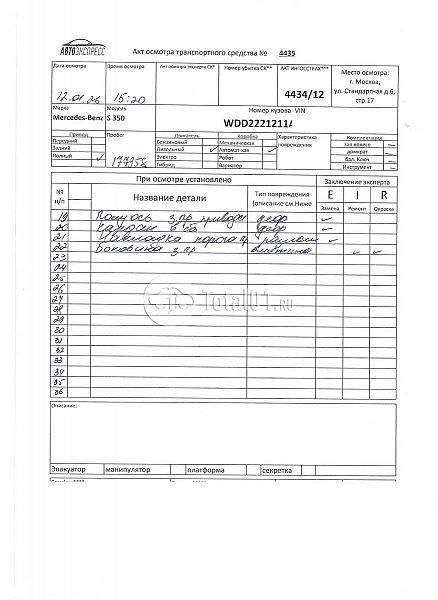 АВТОЭКСПРЕСС
Акт осмотра транспортного средства № 4435
Дата осмотра
Время осмотра
Акт осмотра эксперта СК*
Номер убытка СК**
АКТ ИНГОССТРАХ***
Место осмотра:
г. Москва,
ул. Стандартная д.6,
стр.17
15:20
4434/12
Марка
Модель
Номер кузова -VIN
Mercedes-Benz S 350
WDD2221211
Привод
Пробег
Двигатель
Коробка
Характеристика
повреждений
Комплектация
Передний
Задний
Полный ✓
Бензиновый
Дизельный ✓
Электро
Гибрид
Механическая
Автомат-кая ✓
Робот
Вариатор
зап.колесо
домкрат
бал. Ключ
Инструмент
При осмотре установлено
Заключение эксперта
№
п/п
Название детали
Тип повреждения
(описание см.Ниже
E I R
Замена Ремонт Окраска
19
20
21 Накладка порога
22 Боковина з пр ✓ ✓
23
24
25
26
27
28
29
30
31
32
33
34
35
36
Total01.ru
Описание:
Эвакуатор манипулятор платформа секретка